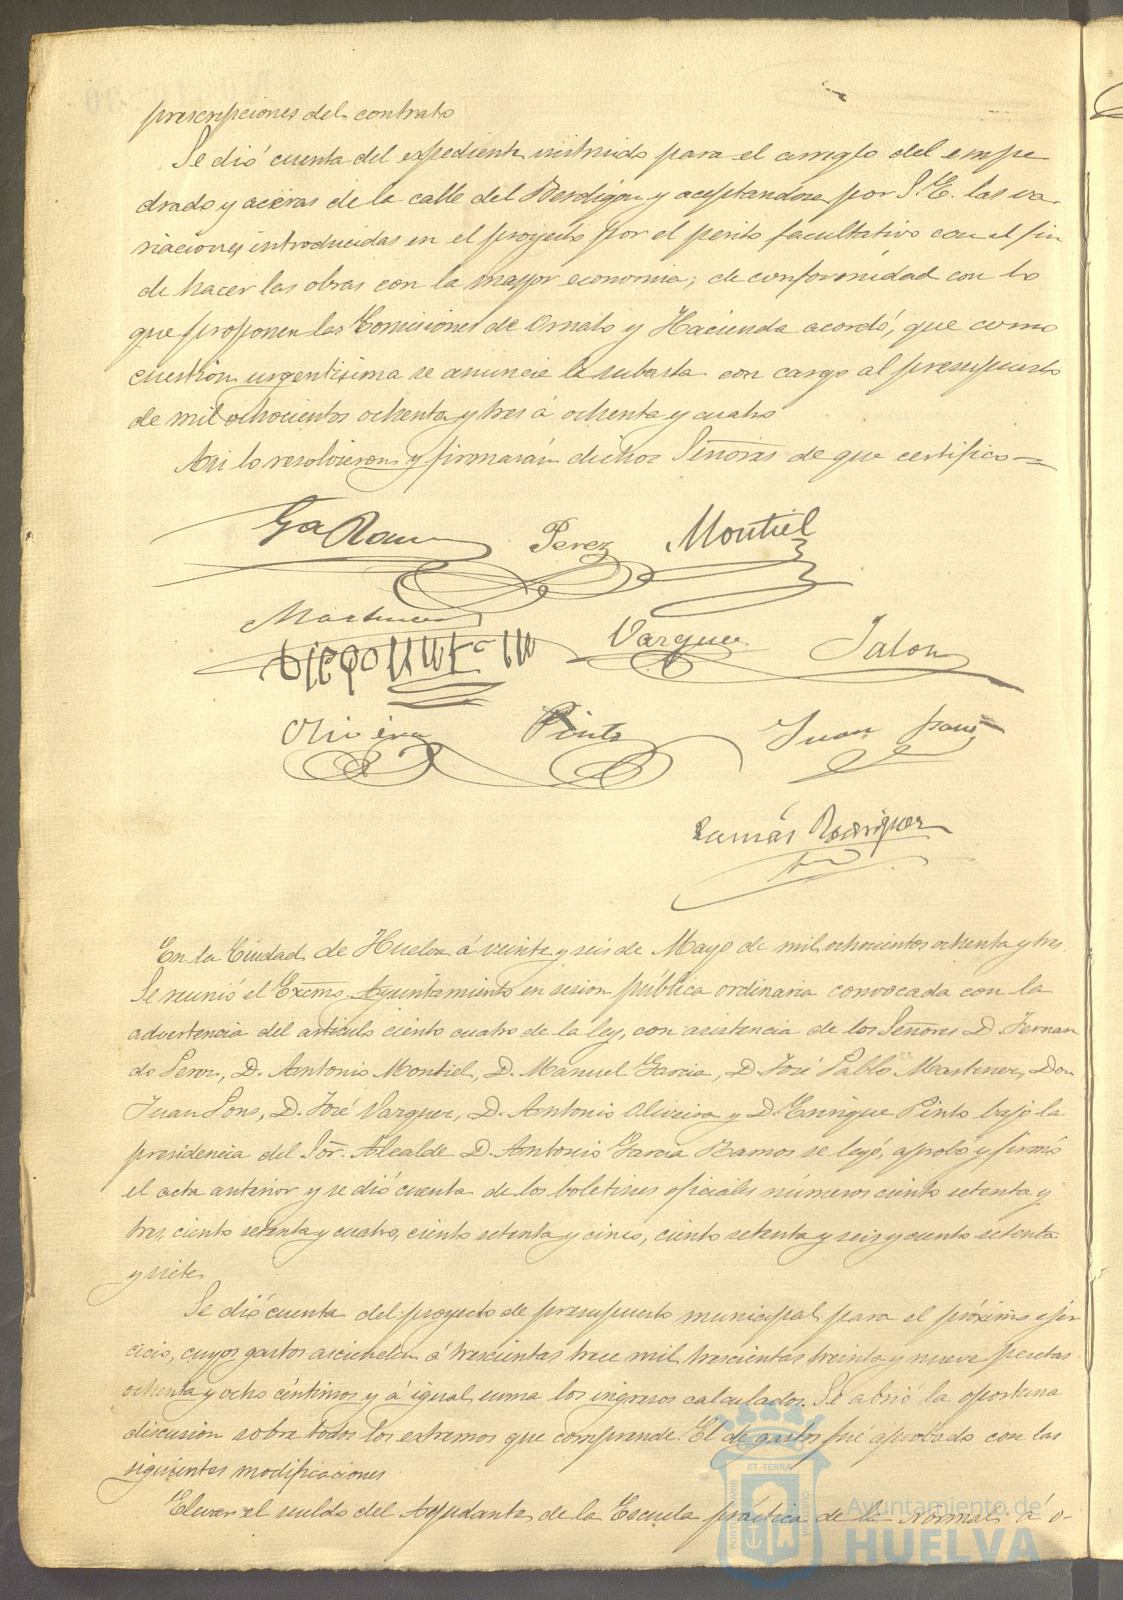 prescripciones del contrato
Se dió cuenta del expediente instruido para el arreglo del empe
drado y aceras de la calle del Berdigon y aceptandose por S. E. las va-
riaciones introducidas en el proyecto por el perito facultativo con el fin
de hacer las obras con la mayor economia; de conformidad con lo
que proponen las Comisiones de Ornato y Hacienda acordó, que como
cuestion urgentisima se anuncie la subasta con cargo al presupuesto
de mil ochocientos ochenta y tres á ochenta y cuatro
Asi lo resolvieron y firmarán dichos Señores de que certifico=
Ga Ramos Perez Montiel
Martinez
Vazquez Jalon
Oliveira Pinto Juan
Tomás Rodriguez
En la Ciudad de Huelva á veinte y seis de Mayo de mil ochocientos ochenta y tres
Se reunió el Excmo. Ayuntamiento en sesion pública ordinaria convocada con la
advertencia del articulo ciento cuatro de la ley, con asistencia de los Señores D. Fernan
do Perez, D. Antonio Montiel, D. Manuel Garcia, D. José Pablo Martinez, Don
Juan Pons, D. José Vazquez, D. Antonio Oliveira y D. Enrique Pinto bajo la
presidencia del Sor. Alcalde D. Antonio Garcia Ramos se leyó, aprobó y firmó
el acta anterior y se dió cuenta de los boletines oficiales números ciento setenta y
tres, ciento setenta y cuatro, ciento setenta y cinco, ciento setenta y seis y ciento setenta
y siete
Se dió cuenta del proyecto de presupuesto municipal para el próximo ejer
cicio, cuyos gastos ascienden á trescientas trece mil trescientas treinta y nueve pesetas
ochenta y ocho céntimos y á igual suma los ingresos calculados. Se abrió la oportuna
discusion sobre todos los extremos que comprende. El de gastos fué aprobado con las
siguientes modificaciones
Elevar el sueldo del Ayudante de la Escuela práctica de la Normal á o-
ET TERRA
Ayuntamiento de
HUELVA